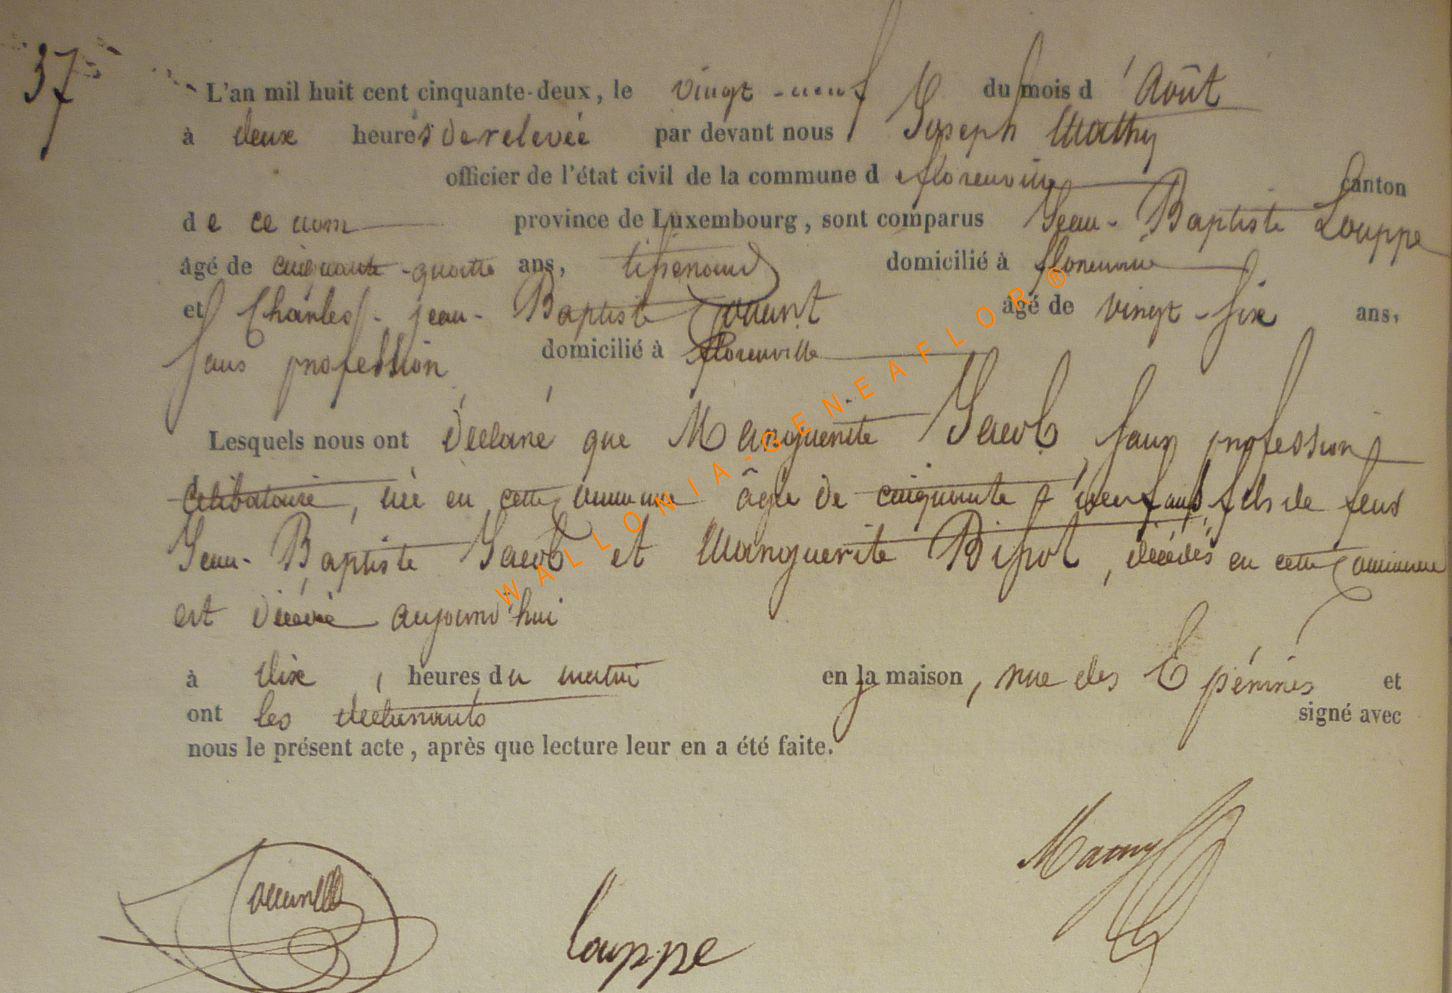 37
L'an mil huit cent cinquante-deux, le vingt-neuf du mois d'Août
à deux heures de relevée par devant nous Joseph Mathy
officier de l'état civil de la commune de florenville canton
de ce nom province de Luxembourg, sont comparus Jean-Baptiste Louppe
âgé de cinquante-quatre ans, tisserand domicilié à florenville
et Charles-jean-Baptiste âgé de vingt-six ans,
sans profession domicilié à florenville
Lesquels nous ont déclaré que Marguerite Jacob, sans profession
célibataire, née en cette commune âgée de cinquante neuf ans, fils de feus
Jean-Baptiste Jacob et Marguerite, décédés en cette commune
est décédé aujourd'hui
à dix heures du matin en la maison, rue des Epérinés et
ont les déclarants signé avec
nous le présent acte, après que lecture leur en a été faite.
Louppe
WALLONIA-GENEAFLOR®